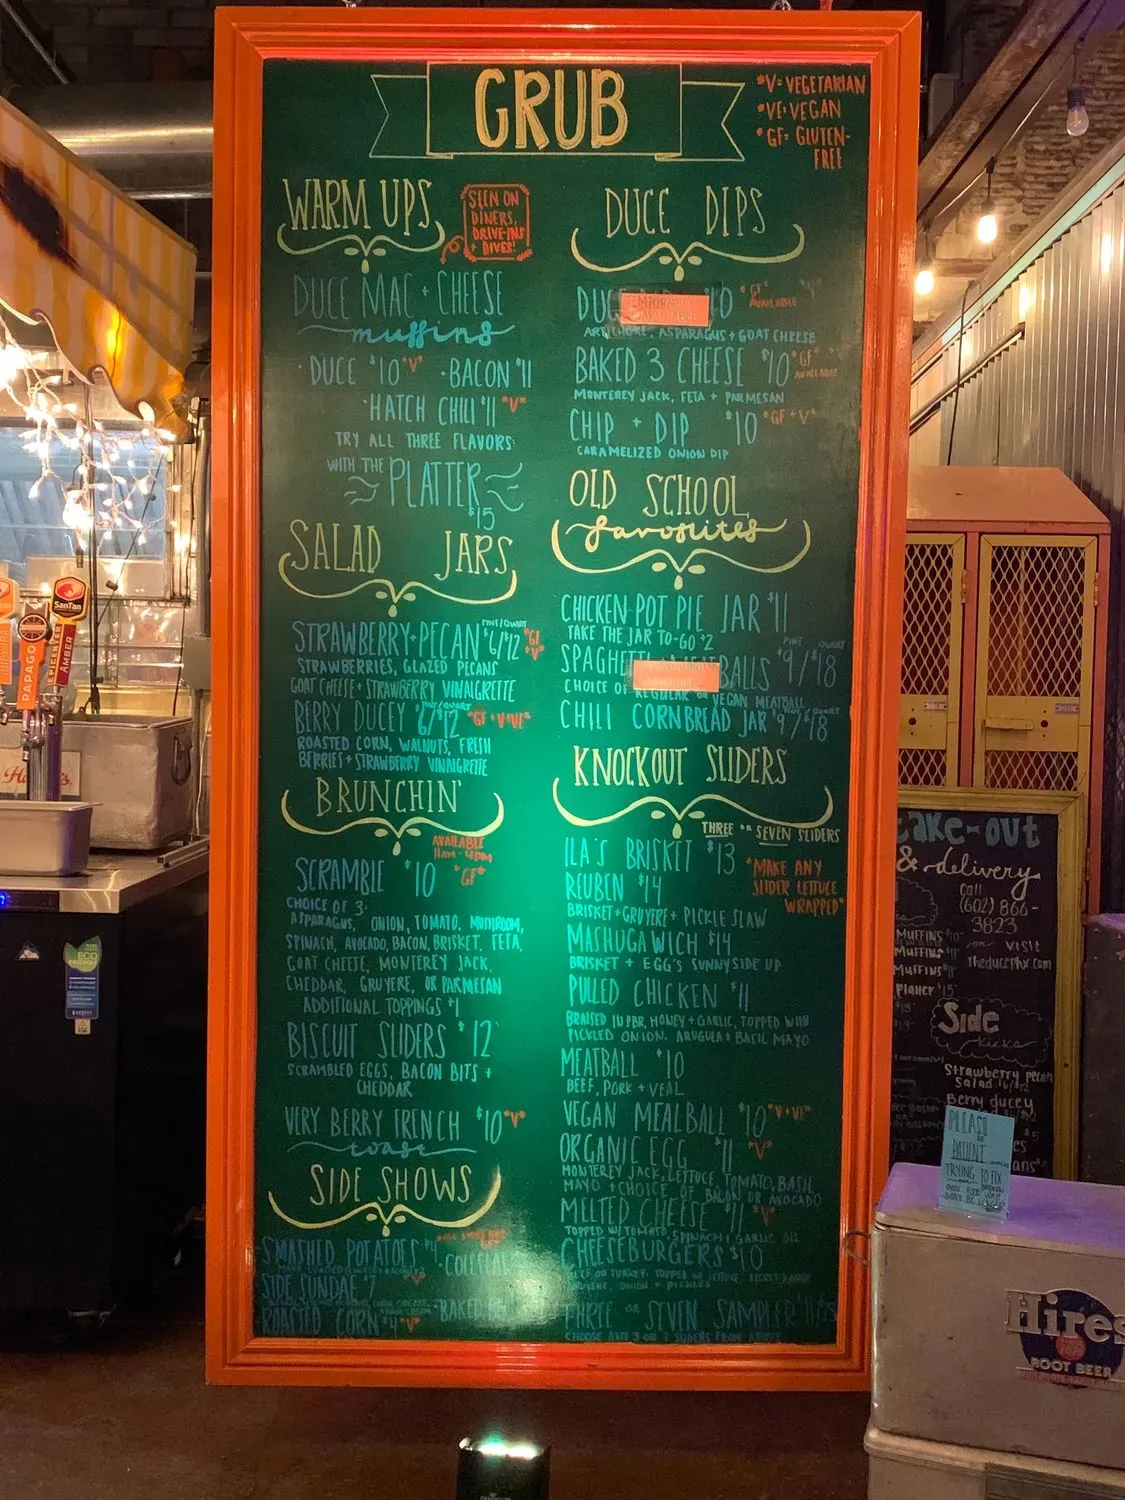 GRUB
*V= VEGETARIAN
*VE= VEGAN
*GF= GLUTEN-
FREE
WARM UPS
SEEN ON
DINERS,
DRIVE-INS
+ DIVES!
DUCE MAC + CHEESE
muffins
· DUCE $10 *V* · BACON $11
· HATCH CHILI $11 *V*
TRY ALL THREE FLAVORS
WITH THE PLATTER
$15
SALAD JARS
PINT/QUART
STRAWBERRY+PECAN $6/$12 *GF
V*
STRAWBERRIES, GLAZED PECANS
GOAT CHEESE + STRAWBERRY VINAIGRETTE
PINT/QUART
BERRY DUCEY 6/$12 *GF+V+VE*
ROASTED CORN, WALNUTS, FRESH
BERRIES + STRAWBERRY VINAIGRETTE
BRUNCHIN'
AVAILABLE
11AM-4PM
SCRAMBLE $10 *GF*
CHOICE OF 3:
ASPARAGUS, ONION, TOMATO, MUSHROOM,
SPINACH, AVOCADO, BACON, BRISKET, FETA,
GOAT CHEESE, MONTEREY JACK,
CHEDDAR, GRUYERE, OR PARMESAN
ADDITIONAL TOPPINGS +1
BISCUIT SLIDERS $12
SCRAMBLED EGGS, BACON BITS +
CHEDDAR
VERY BERRY FRENCH $10 *V*
toast
SIDE SHOWS
SMASHED POTATOES $4
· COLESLAW
SIDE SUNDAE $7
ROASTED CORN $4 *V*
· BAKED
DUCE DIPS
TEMPORARILY
*GF
AVAILABLE
ARTICHOKE, ASPARAGUS + GOAT CHEESE
BAKED 3 CHEESE $10 *GF
AVAILABLE
MONTEREY JACK, FETA + PARMESAN
CHIP + DIP $10 *GF+V*
CARAMELIZED ONION DIP
OLD SCHOOL
favorites
CHICKEN POT PIE JAR $11
TAKE THE JAR TO-GO +2
PINT QUART
SPAGHETTI $9/$18
CHOICE OF REGULAR OR VEGAN MEATBALL
CHILI CORNBREAD JAR $9/$18
KNOCKOUT SLIDERS
THREE OR SEVEN SLIDERS
ILA'S BRISKET $13
*MAKE ANY
SLIDER LETTUCE
WRAPPED*
REUBEN $14
BRISKET + GRUYERE + PICKLE SLAW
MASHUGAWICH $14
BRISKET + EGG'S SUNNYSIDE UP
PULLED CHICKEN $11
BRAISED IN PBR, HONEY + GARLIC, TOPPED WITH
PICKLED ONION, ARUGULA + BASIL MAYO
MEATBALL $10
BEEF, PORK + VEAL
VEGAN MEALBALL $10 *V+VE*
ORGANIC EGG $11 *V*
MONTEREY JACK, LETTUCE, TOMATO, BASIL
MAYO + CHOICE OF BACON OR AVOCADO
MELTED CHEESE $11 *V*
TOPPED W/ TOMATO, SPINACH + GARLIC OIL
CHEESEBURGERS $10
BEEF OR TURKEY, TOPPED W/ LETTUCE,
ONION + PICKLES
THREE OR SEVEN SAMPLER
CHOOSE ANY 3 OR 7 SLIDERS FROM ABOVE
SanTan
PAPAGO
AMBER
ECO
take-out
& delivery
Call
(602) 866-
3823
or VISIT
TheducePhx.com
MUFFINS $10
MUFFINS $11
MUFFINS $11
Platter $15
Side
Kicks
Strawberry pecan
Salad $6/$12
Berry ducey
PLEASE
BE
PATIENT
TRYING TO FIX
Hires
ROOT BEER